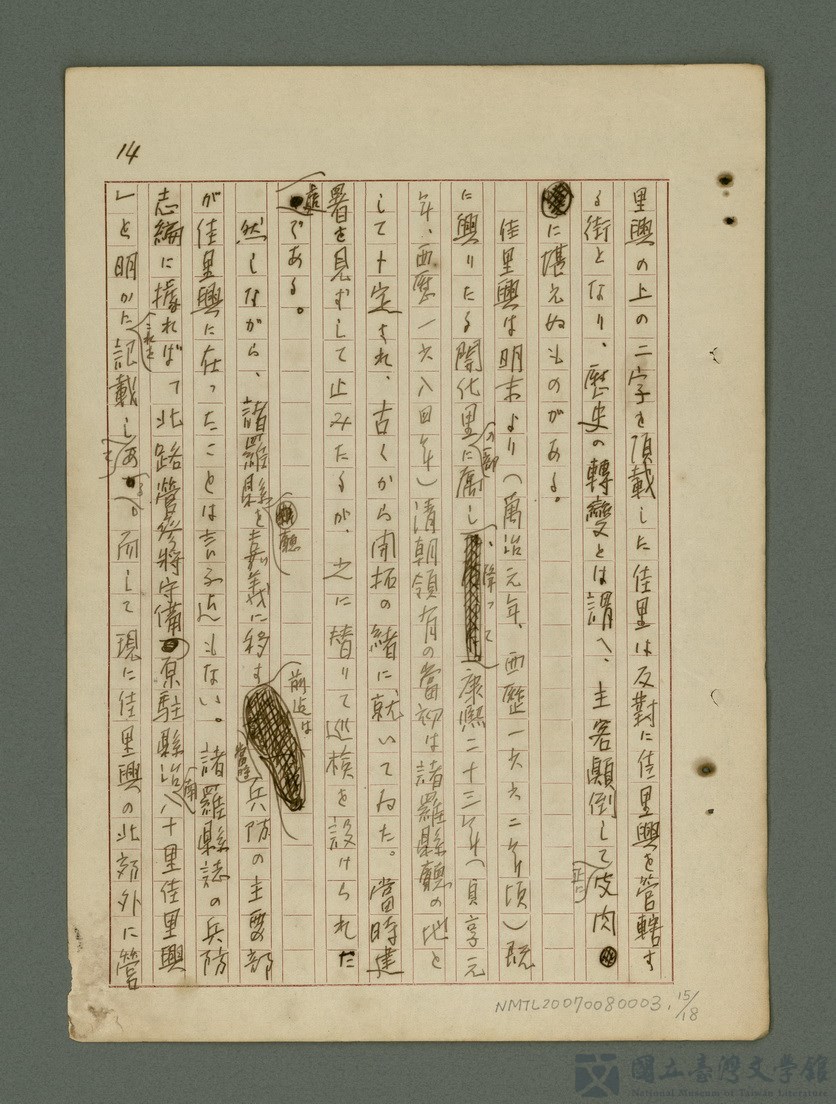 14
里興の上の二字を頂戴した佳里は反対に佳里興を管轄す
る街となり、歴史の轉變とは謂へ、主客顚倒して正に皮肉
に堪えぬものがある。
佳里興は明末より(萬治元年、西歷一六六二年頃)既
に興りたる開化里の一部に屬し、降って康熙二十三年(貞享元
年、西歷一六八四年)清朝領有の當初は諸羅縣廳の地と
して卜定すれ、古くから開拓の緒に就いてゐた。當時建
署を見ずして止みたるが、之に替りて巡檢を設けられた
處である。
然しながら、諸羅縣廳を嘉義に移す前迄は當時兵防の主要部
が佳里興に在ったことは言ふ迄もない。諸羅縣誌の兵防
志編に據れば「北路營參將守備原駐縣治南八十里佳里興
」と明かにこれを記載してある。而して現に佳里興の北郊外に營
NMTL20070080003,15/18
國立臺灣文學館
National Museum of Taiwan Literature